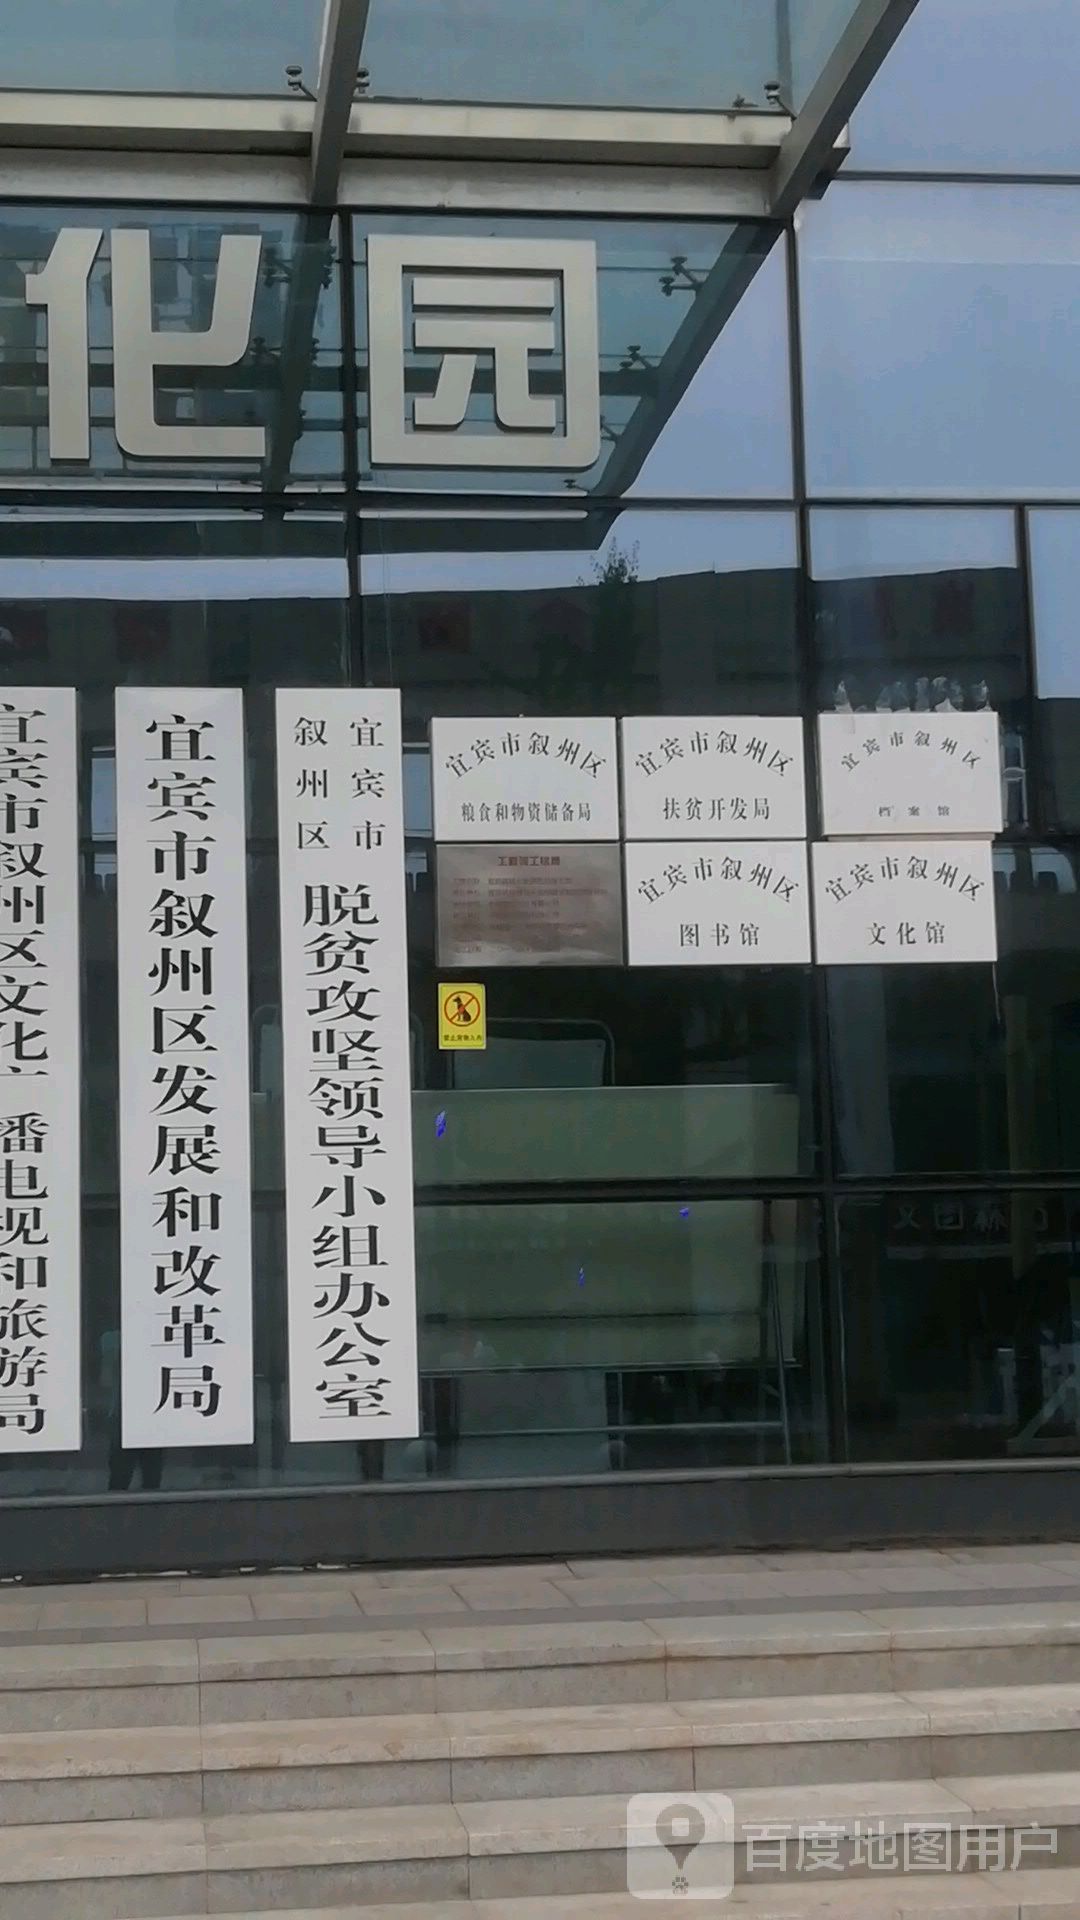 化园
宜宾市叙州区文化广播电视和旅游局
宜宾市叙州区发展和改革局
宜宾市
叙州区
脱贫攻坚领导小组办公室
宜宾市叙州区
粮食和物资储备局
宜宾市叙州区
扶贫开发局
宜宾市叙州区
档案馆
工程竣工信息
宜宾市叙州区
图书馆
宜宾市叙州区
文化馆
禁止宠物入内
百度地图用户